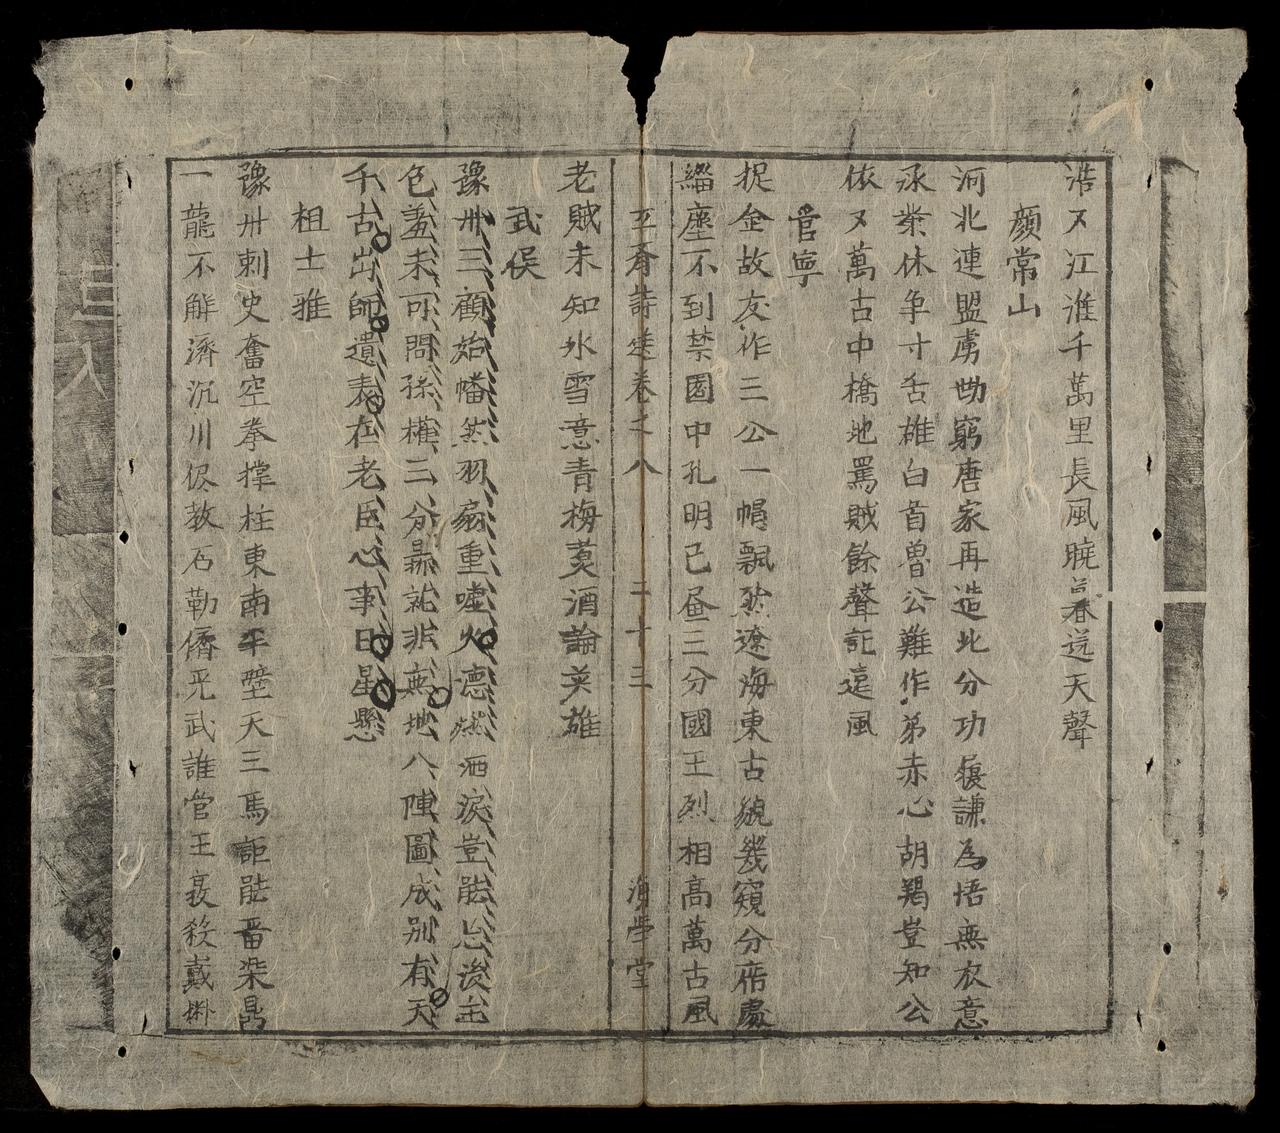 浩又江淮千萬里長風曉暮送天聲
顔常山
河北連盟虜勢窮唐家再造此分功履謙爲悟無衣意
承業休爭寸舌雄白首魯公難作弟赤心胡羯豈知公
依又萬古中橋地罵賊餘聲託遠風
管寧
捉金故友作三公一帽飄然遼海東古貌幾窺分席處
緇塵不到禁園中孔明已屈三分國王烈相高萬古風
立齋詩選卷之八 二十三 海學堂
老賊未知氷雪意青梅煑酒論英雄
武侯
豫州三顧始幡然羽扇重噓火德燃洒淚豈能忘後主
色羞未可問孫權三分鼎說非無地八陣圖成別有天
千古出師遺表在老臣心事日星懸
祖士雅
豫州刺史奮空拳撑柱東南半壁天三馬詎能晋柒鼎
一龍不解濟沉川伋教石勒儕光武誰管王敦殺戴